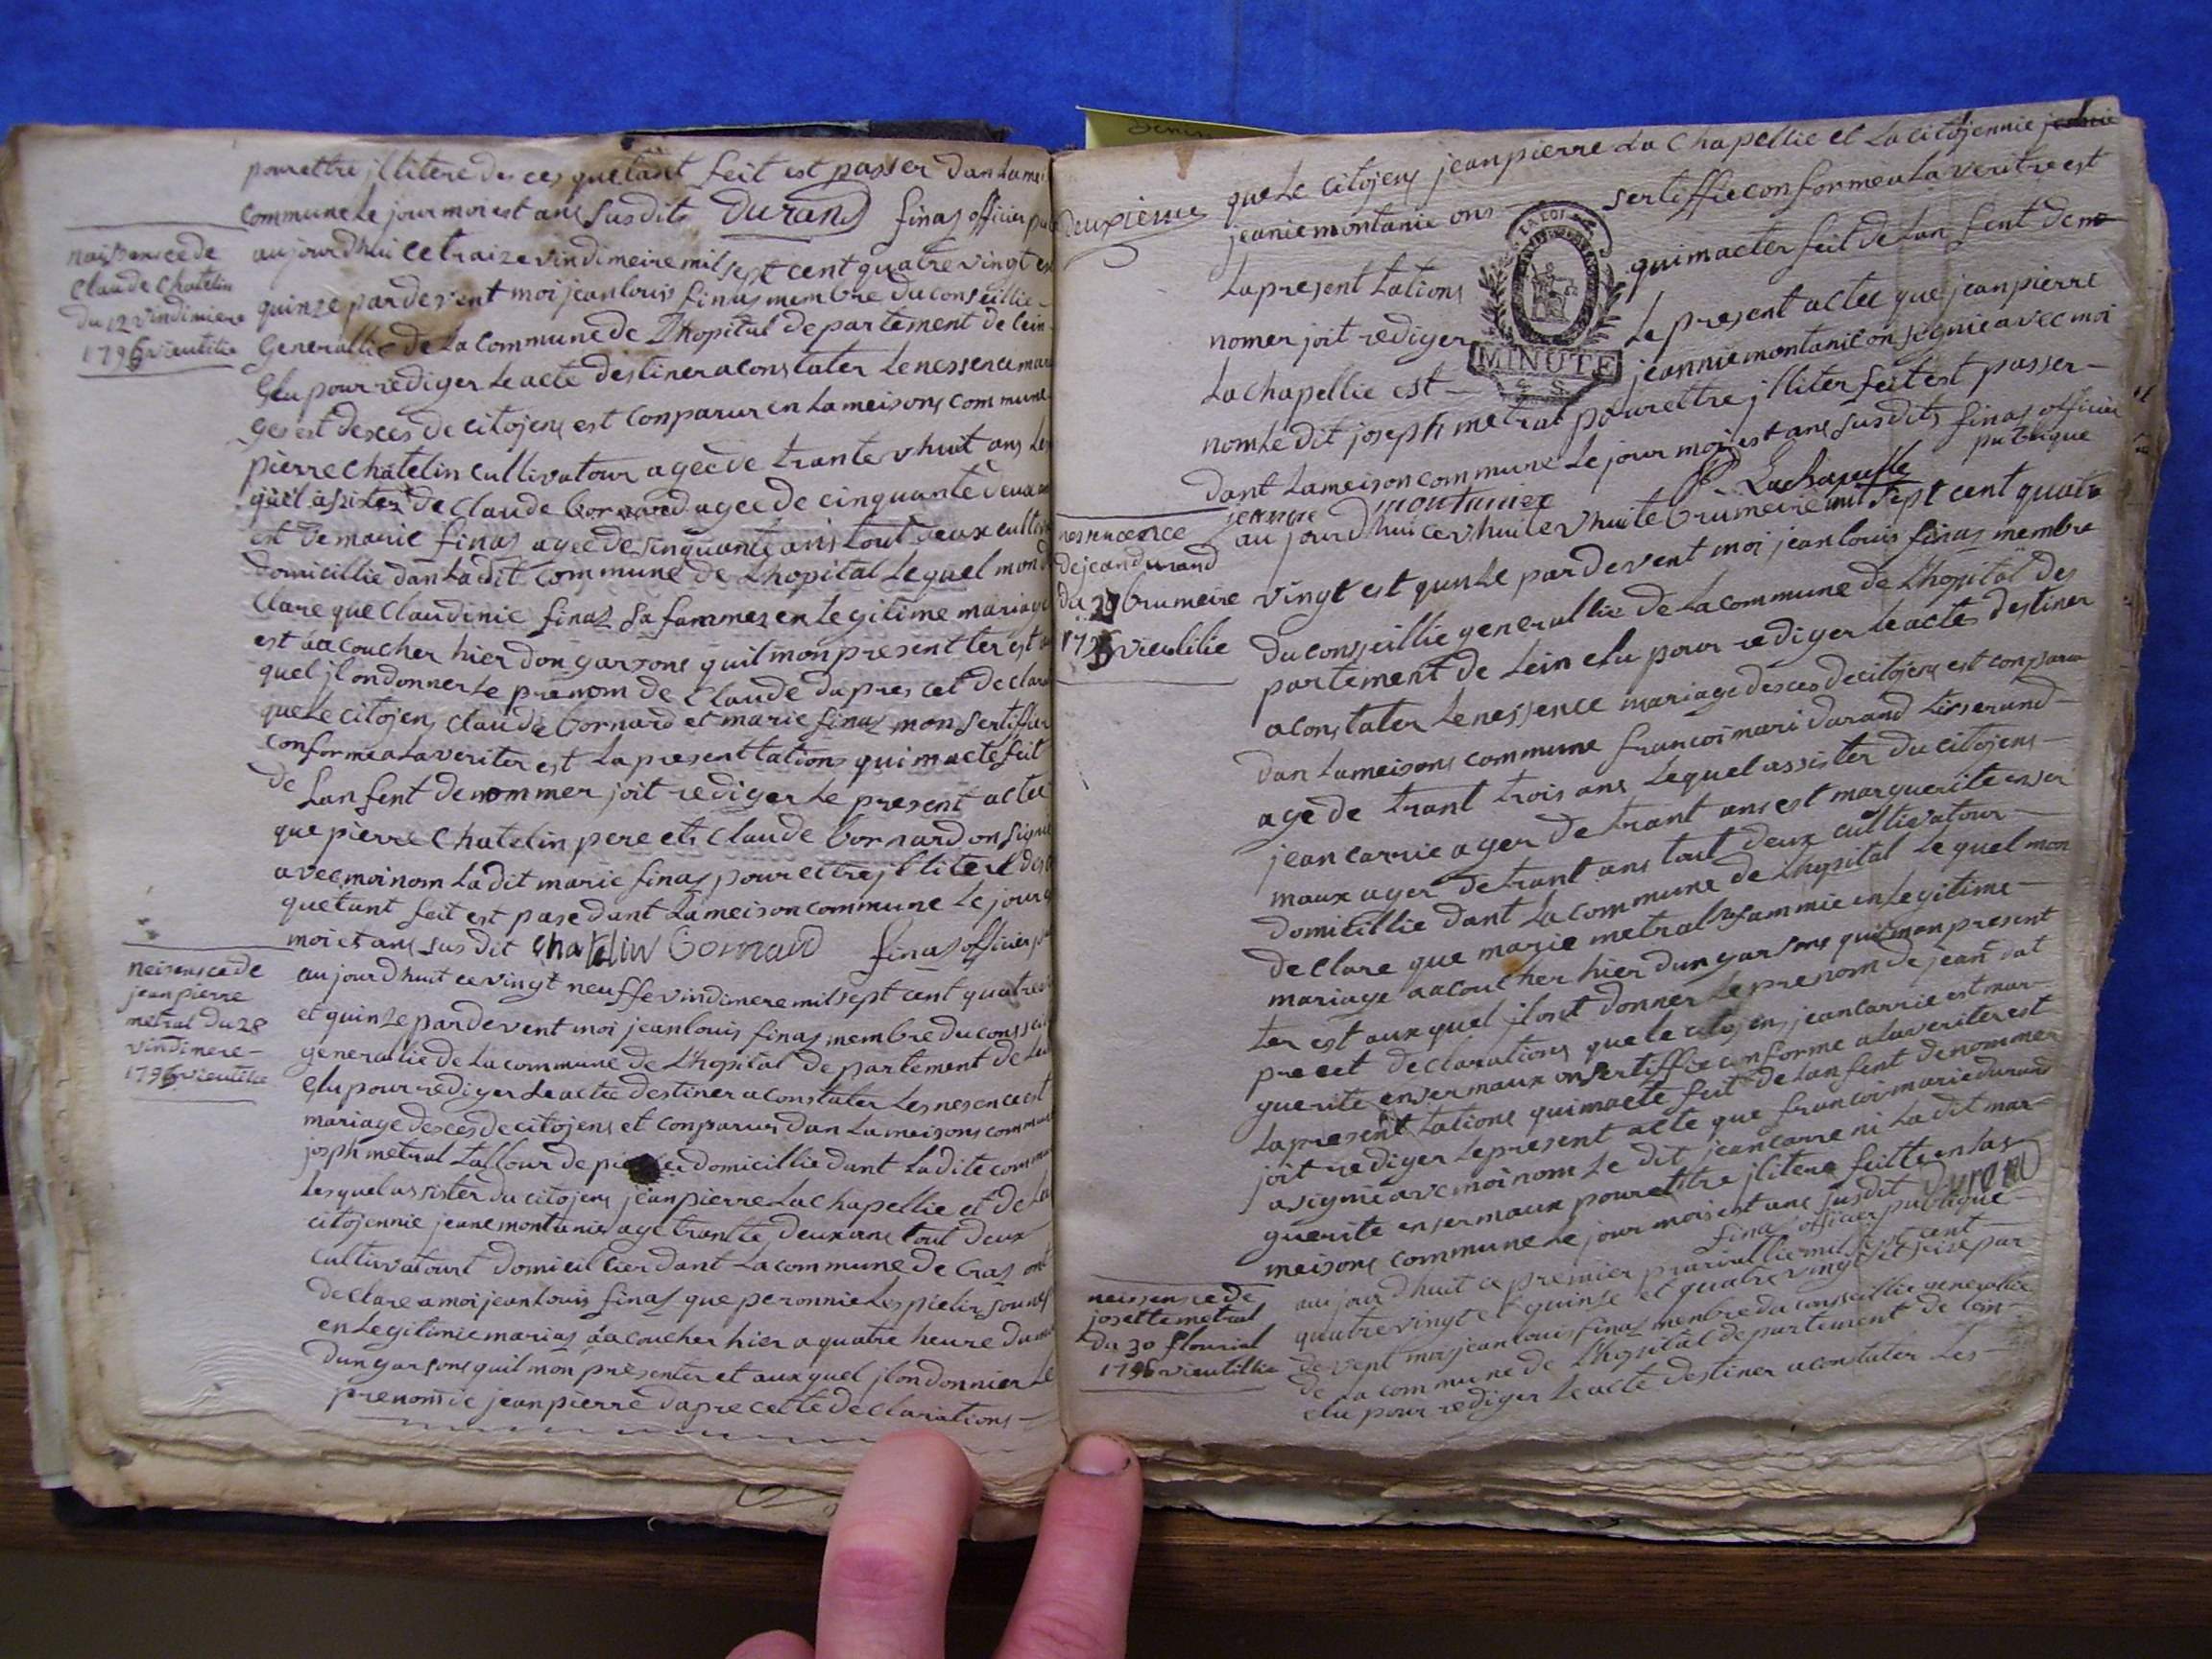 pourettre jllitere des ces quetant feit est passer dan Lamei
commune Le jour moi est ans susdits Durand finas officier pu
naissence de
Claude Chatelin
du 12 vindimiere
1796 vieutilie
aujourdhui ce traize vindimeire mil sept cent quatre vingt est
quinze par devent moi jean louis finas membre du conseillie
Generallie de La Commune de Lhopital departement de Lein
Elu pour rediger Le acte destiner a constater Lenessence maria
ges est desces de citojens est conparur en Lameisons commune
pierre Chatelin cullivatour agée de trante vhuit ans Le
quel assister de Claude bornard agee de cinquante deux an
est de marie finas agee de sinquante ans tout deux cultiv
domicillie dan Ladit commune de Lhopital Lequel mon d
Clare que Claudinie finas sa fammes en Legitime mariage
est aacoucher hier don garsons quil mon present ter est a
quel jl ondonner Le prenom de Claude dapres cet declara
que Le citojens claude bornard et marie finas mon sertiffier
conforme a La veriter est La present tations qui macte feit
de Lanfent denommer joit rediger Le present actee
que pierre Chatelin pere ets Claude bornard on signie
avec moi nom La dit marie finas pour ettre jlliterl des
quetant feit est pase dant Lameison commune Le jour
moi et ans sus dit Chatelin Bornard finas officier pu
neisensce de
jean pierre
metral du 28
vindimere
1796 vieutilie
aujourdhuit ce vingt neuffe vindimere mil sept cent quatrevi
et quinze par devent moi jean louis finas membre du conseil
generalie de La commune de Lhopital departement de Lein
Elu pour rediger Le actée destiner a constater Lesnesence est
mariage desces de citojens et conparur dan Lameisons commune
josph metral tallour de pierer domicillie dant Ladite commune
Lesquel assister du citojens jean pierre Lachapellie et de La
citojennie jeane montanier age trante deux ans tout deux
cultivatourt domicillier dant La commune de Cras ont
declare a moi jean louis finas que peronnie
en Legitimie marias aacoucher hier a quatre heure du
dun garsons quil mon presenter et auxquel jlondonner Le
prenom de jean pierre dapre cette declarations
deuxieme
que Le citojens jean pierre La Chapellie et La citojennie
jeanie montanie ons sertiffie conforme a La veritre est
La present tations qui macter feit de Lan fent de no
nomer joit rediger Le present actee que jean pierre
La chapellie est jeannie montanie on signie avec moi
LA LOI
MINUTE
nom Le dit joseph metral pourettre jlliter feit est passer
dant Lameison commune Le jour moi est ans susdits finas officier
publique
jeanne montanier JP Lachapelle
nessencence
de jean durand
du brumeire
vieutilie
aujourdhui ce vhuite brumeire mil sept cent quatre
vingt est quinze par devent moi jean louis finas membre
du conseillie generallie de La commune de Lhopital de
partement de Lein elu pour rediger Le actes destiner
a constater Lenessence mariage desces de citojens est conparu
dan Lameisons commune francoi mari durand tisserand
age de trant trois ans Lequel assister du citojens
jean carrie ager de trant ans est marguerite enser
maux ager de trant ans tout deux cultivatour
domicillie dant La commune de Lhopital Le quel mon
declare que marie metral sa fammie en Legitime
mariage aacoucher hier dun garsons quil mon present
ter est aux quel jlont donner Le prenom de jean dat
pre cet declarations que Le citojens jean carrie est mar
guerite ensermaux on sertiffie conforme a La veriter est
La present tations qui macte feit de Lanfent denommer
joit rediger Le present acte que francoi marie durand
a signie avc moi nom Le dit jean carre ni La dit mar
guerite ensermaux pourettre jlitere feitte en Las
meisons commune Le jour mois est ans susdit Durand
finas officier publique
neissensce de
josette metral
du 30 flourial
1796 vieutillie
aujourdhuit ce premier prairiallie mil sept cent
quatre vingt et quinze et quatre vingt et sixe par
devent moi jean louis finas menbre du conseillie generallie
de La commune de Lhopital departement de Lein
elu pour rediger Le acte destiner a constater Les